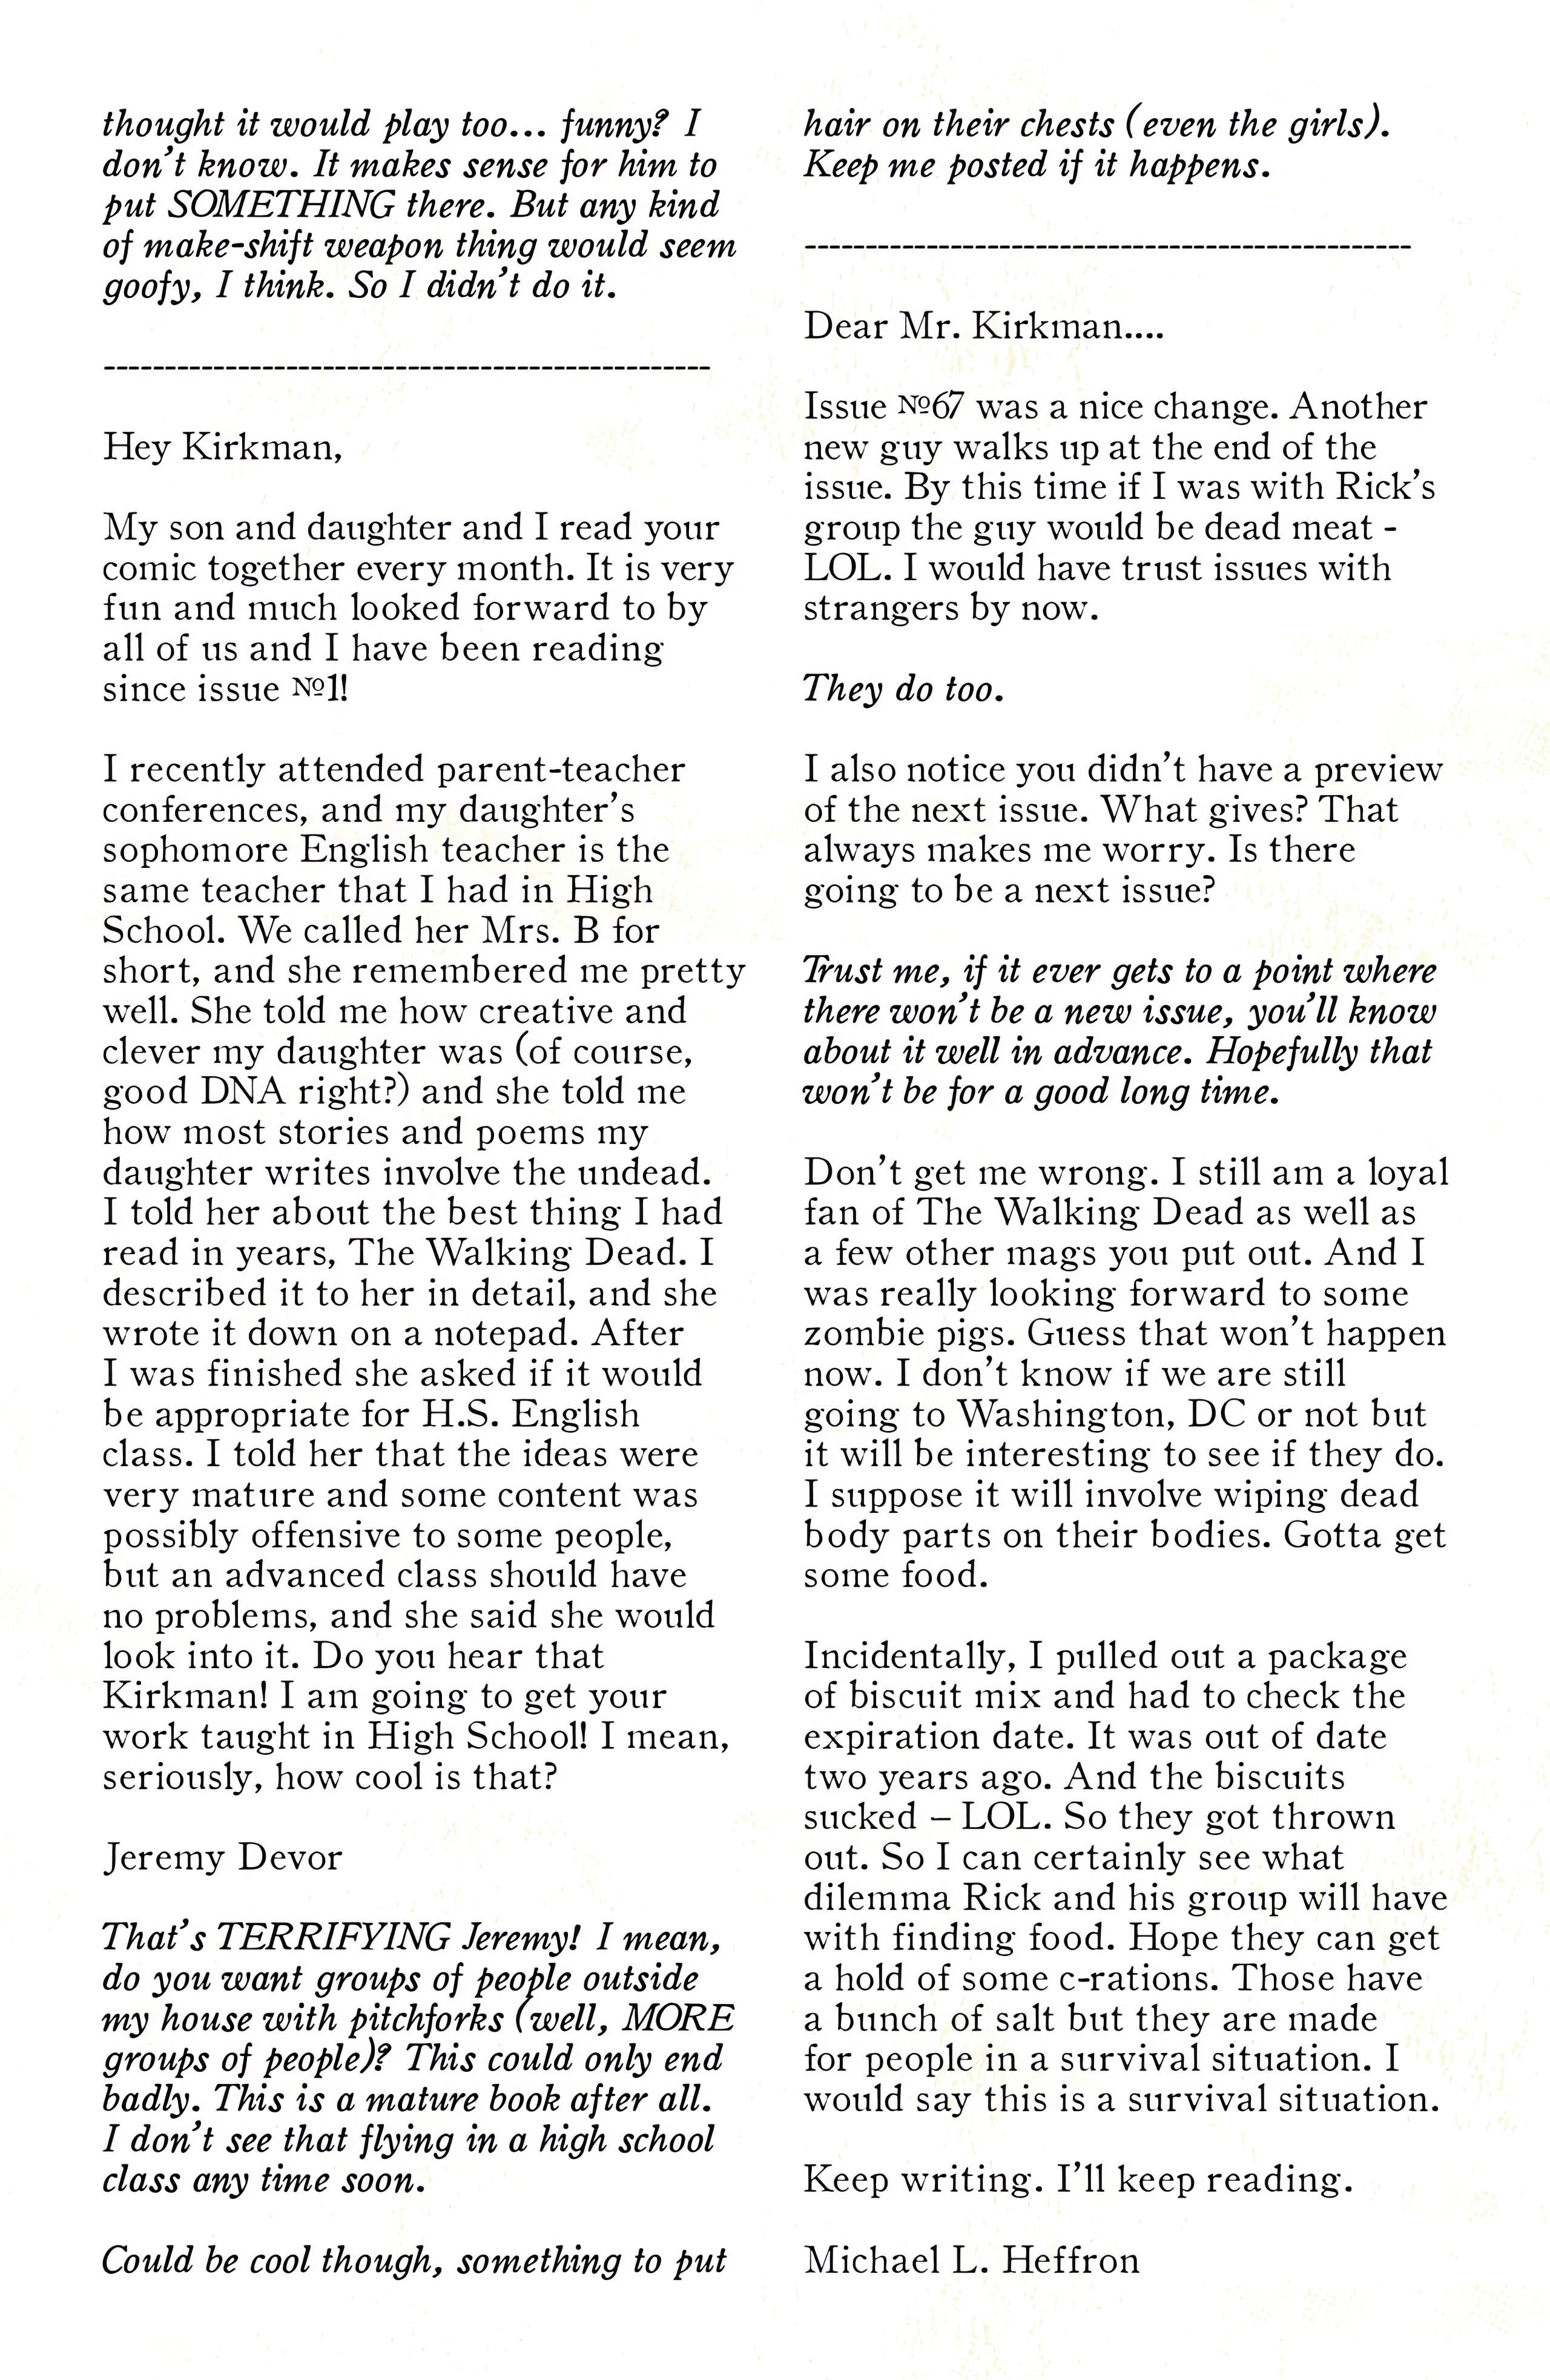 thought it would play too... funny? I
don't know. It makes sense for him to
put SOMETHING there. But any kind
of make-shift weapon thing would seem
goofy, I think. So I didn't do it.
--------------------------------------------------
Hey Kirkman,
My son and daughter and I read your
comic together every month. It is very
fun and much looked forward to by
all of us and I have been reading
since issue №1!
I recently attended parent-teacher
conferences, and my daughter's
sophomore English teacher is the
same teacher that I had in High
School. We called her Mrs. B for
short, and she remembered me pretty
well. She told me how creative and
clever my daughter was (of course,
good DNA right?) and she told me
how most stories and poems my
daughter writes involve the undead.
I told her about the best thing I had
read in years, The Walking Dead. I
described it to her in detail, and she
wrote it down on a notepad. After
I was finished she asked if it would
be appropriate for H.S. English
class. I told her that the ideas were
very mature and some content was
possibly offensive to some people,
but an advanced class should have
no problems, and she said she would
look into it. Do you hear that
Kirkman! I am going to get your
work taught in High School! I mean,
seriously, how cool is that?
Jeremy Devor
That's TERRIFYING Jeremy! I mean,
do you want groups of people outside
my house with pitchforks (well, MORE
groups of people)? This could only end
badly. This is a mature book after all.
I don't see that flying in a high school
class any time soon.
Could be cool though, something to put
hair on their chests (even the girls).
Keep me posted if it happens.
--------------------------------------------------
Dear Mr. Kirkman....
Issue №67 was a nice change. Another
new guy walks up at the end of the
issue. By this time if I was with Rick's
group the guy would be dead meat -
LOL. I would have trust issues with
strangers by now.
They do too.
I also notice you didn't have a preview
of the next issue. What gives? That
always makes me worry. Is there
going to be a next issue?
Trust me, if it ever gets to a point where
there won't be a new issue, you'll know
about it well in advance. Hopefully that
won't be for a good long time.
Don't get me wrong. I still am a loyal
fan of The Walking Dead as well as
a few other mags you put out. And I
was really looking forward to some
zombie pigs. Guess that won't happen
now. I don't know if we are still
going to Washington, DC or not but
it will be interesting to see if they do.
I suppose it will involve wiping dead
body parts on their bodies. Gotta get
some food.
Incidentally, I pulled out a package
of biscuit mix and had to check the
expiration date. It was out of date
two years ago. And the biscuits
sucked – LOL. So they got thrown
out. So I can certainly see what
dilemma Rick and his group will have
with finding food. Hope they can get
a hold of some c-rations. Those have
a bunch of salt but they are made
for people in a survival situation. I
would say this is a survival situation.
Keep writing. I'll keep reading.
Michael L. Heffron